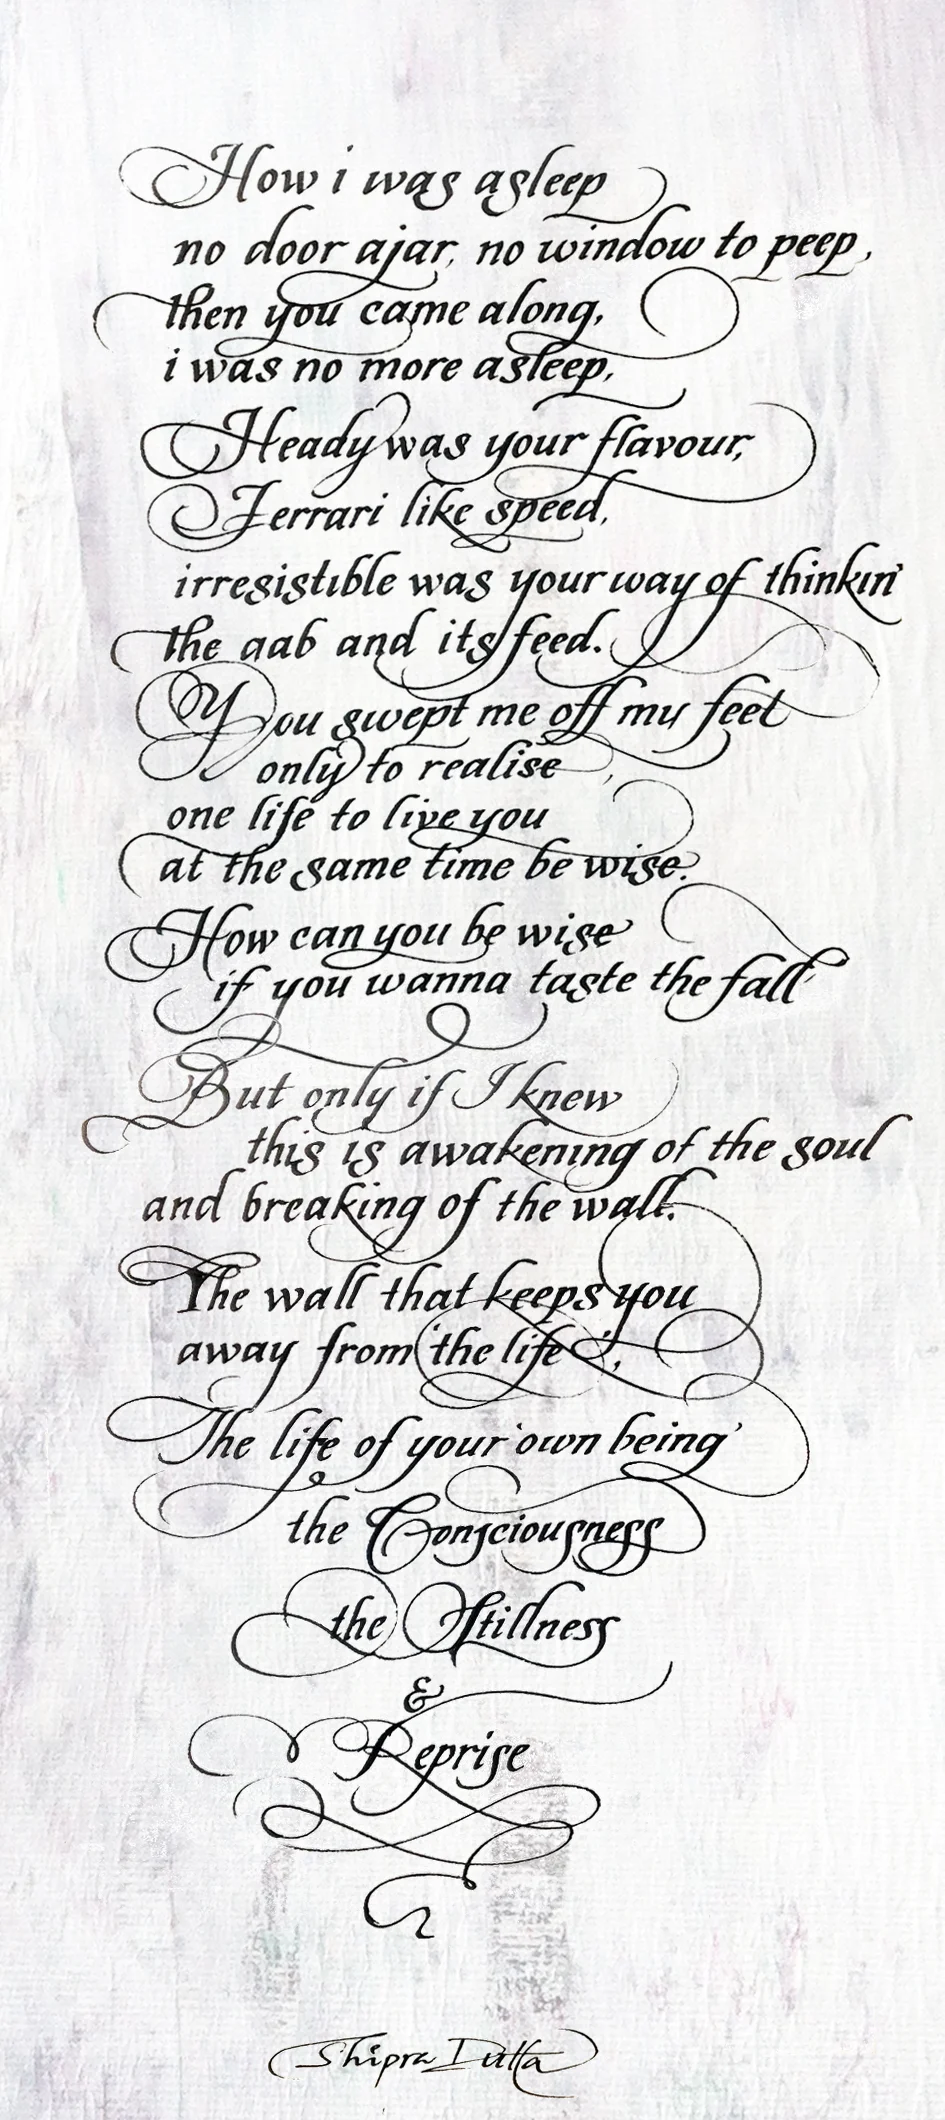 How i was asleep
no door ajar, no window to peep,
then you came along,
i was no more asleep,
Heady was your flavour,
Ferrari like speed,
irresistible was your way of thinkin'
the aab and its feed.
You swept me off my feet
only to realise,
one life to live you
at the same time be wise.
How can you be wise
if you wanna taste the fall
But only if I knew
this is awakening of the soul
and breaking of the wall.
The wall that keeps you
away from 'the life',
The life of your 'own being'
the Consciousness
the Stillness
&
Reprise
Shipra Dutta